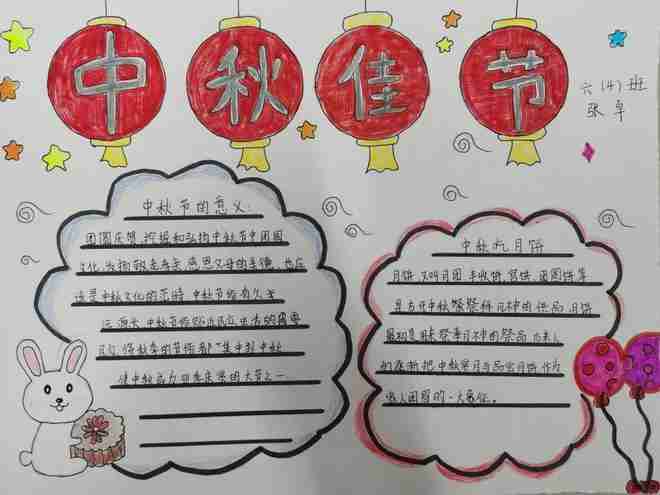 中秋佳节
六(4)班
张卓
中秋节的意义:
团圆庆贺,挖掘和弘扬中秋节中团圆
文化,发扬敬老孝亲,感恩父母的美德,也应
该是中秋文化的范畴,中秋节俗有久
远源头,中秋节俗
秋季的节俗都"集中到中秋
使中秋成为四季庆赏的大节之一
中秋和月饼
月饼,又叫月团、丰收饼、宫饼、团圆饼等
是古代中秋祭祭拜月神的供品,月饼
最初是用来祭奉月神的祭品,后来人
们逐渐把中秋赏月与品尝月饼,作为
家人团圆的一大象征。